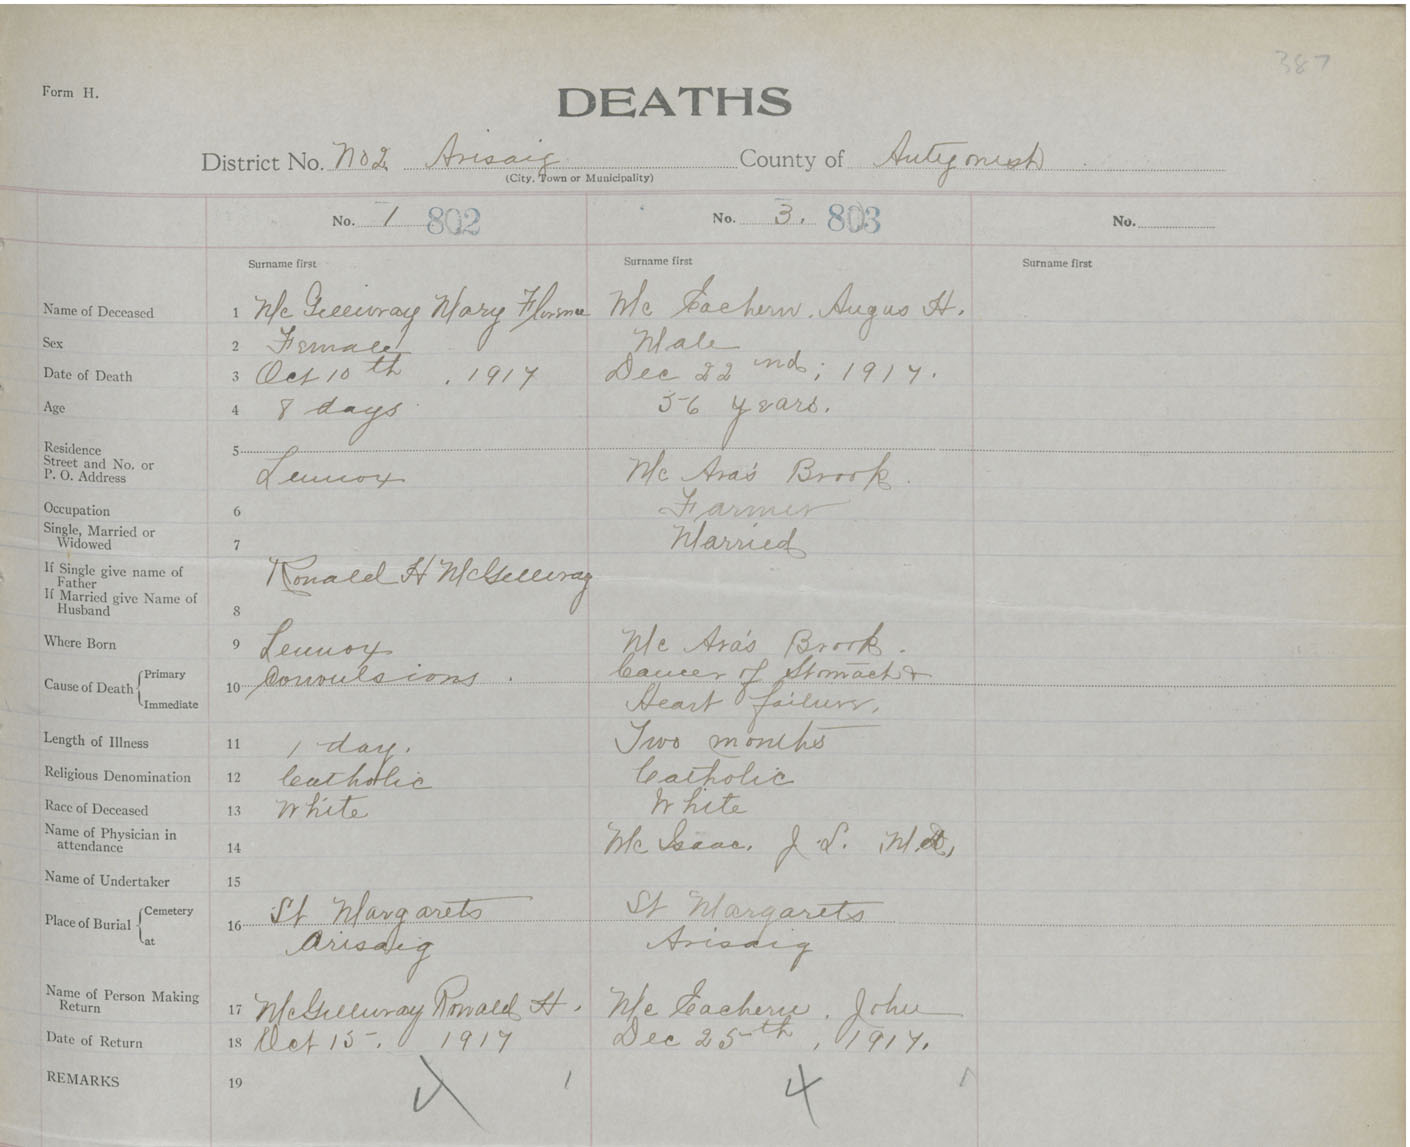 387
Form H.
DEATHS
District No. No 2 Arisaig County of Antigonish
(City, Town or Municipality)
No. 1 802 No. 3. 803 No.
Surname first Surname first Surname first
Name of Deceased 1 McGillivray Mary Florence Mc Eachern. Angus H.
Sex 2 Female Male
Date of Death 3 Oct 10th, 1917 Dec 22nd; 1917.
Age 4 8 days 56 years.
Residence 5
Street and No. or
P. O. Address Lennox Mc Ara's Brook.
Occupation 6 Farmer
Single, Married or
Widowed 7 Married
If Single give name of
Father Ronald H McGillivray
If Married give Name of
Husband 8
Where Born 9 Lennox Mc Ara's Brook.
Cause of Death Primary Immediate 10 Convulsions. Cancer of Stomach &
Heart failure.
Length of Illness 11 1 day. Two months
Religious Denomination 12 Catholic Catholic
Race of Deceased 13 White White
Name of Physician in
attendance 14 Mc Isaac, J. L. M.D,
Name of Undertaker 15
Place of Burial Cemetery at 16 St Margarets St Margarets
Arisaig Arisaig
Name of Person Making
Return 17 McGillivray Ronald H. Mc Eachern. John
Date of Return 18 Oct 15. 1917 Dec 25th, 1917.
REMARKS 19 1 4 1